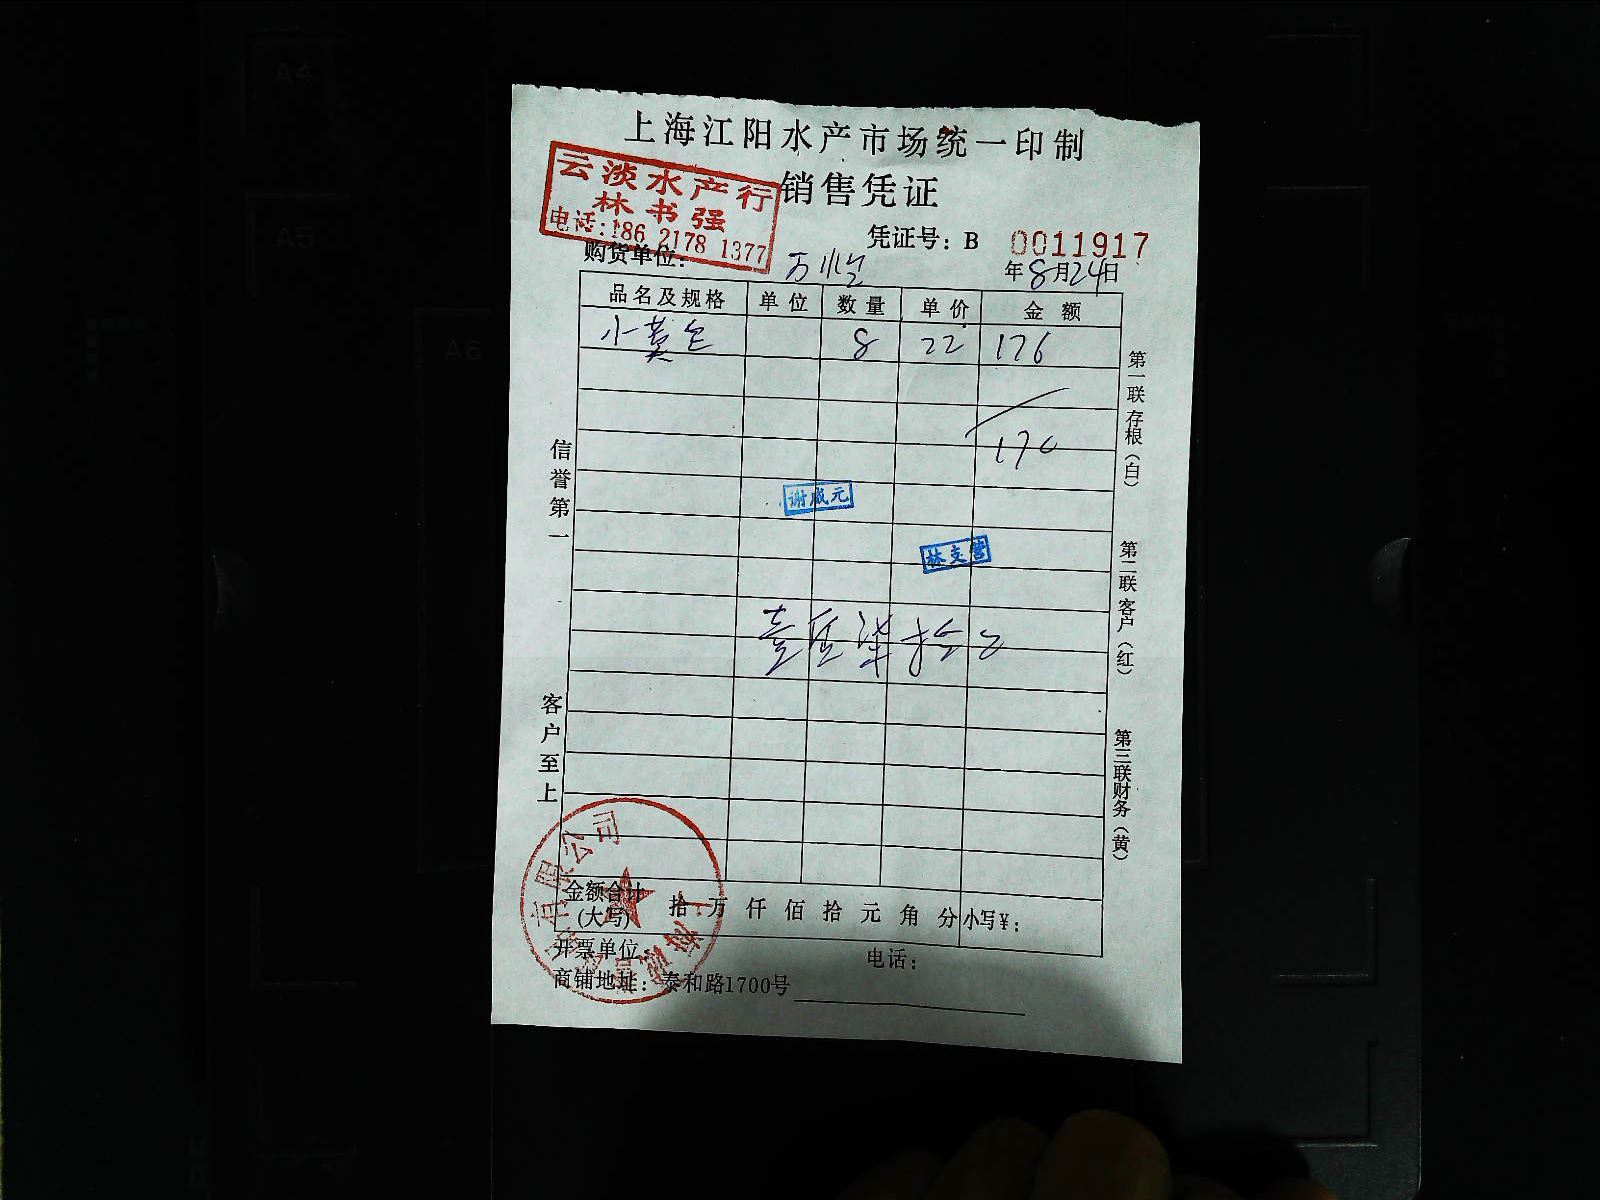 上海江阳水产市场统一印制
销售凭证
云淡水产行
林书强
电话:186 2178 1377
凭证号：B 0011917
购货单位：万
年8月24日
品名及规格 单位 数量 单价 金额
小黄 8 22 176
170
谢成元
林支营
壹佰柒拾
信誉第一
客户至上
第一联存根（白）
第二联客户（红）
第三联财务（黄）
金额合计
(大写) 拾 万 仟 佰 拾 元 角 分 小写¥：
开票单位： 电话：
商铺地址：泰和路1700号
有限公司
A4
A5
A6